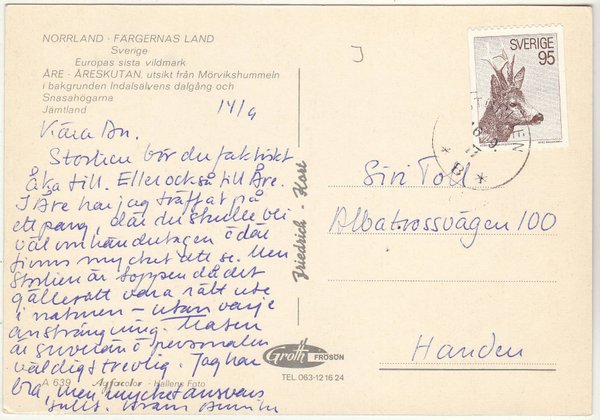 NORRLAND · FÄRGERNAS LAND
Sverige
Europas sista vildmark
ÅRE - ÅRESKUTAN, utsikt från Mörvikshummeln
i bakgrunden Indalsälvens dalgång och
Snasahögarna
Jämtland
14/9
Kära
Storlien bör du faktiskt
åka till. Eller också till Åre.
I Åre har jag träffat på
ett par, där du skulle bli
väl omhändertagen o där
finns mycket att se. Men
Storlien är toppen då det
gäller att vara rätt ute
i naturen - utan varje
ansträngning. Maten
är suverän o personalen
väldigt trevlig. Jag har
bra, men mycket ansvars
fullt. Kram
A 639 Agfacolor - Hallens Foto
Friedrich - Host
Groth FRÖSÖN
TEL. 063-12 16 24
SVERIGE
95
Siri Toll
Albatrossvägen 100
Handen